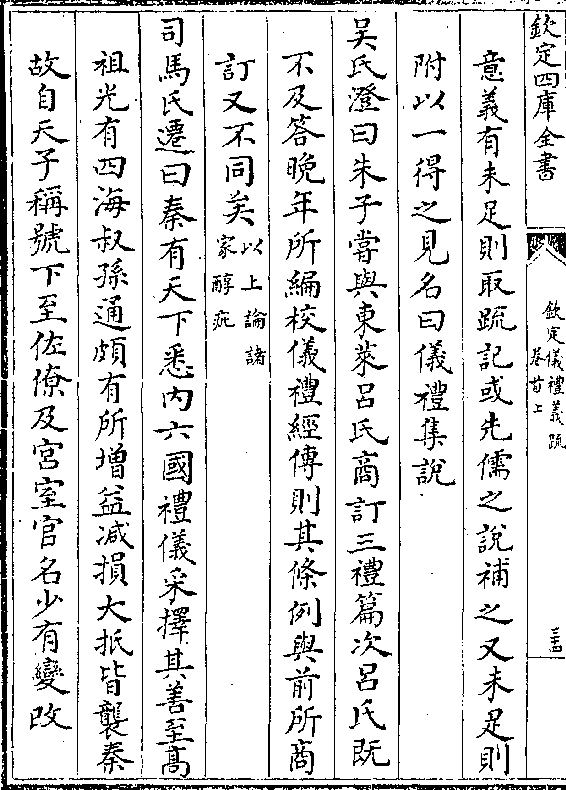 欽定四庫全書
欽定儀禮義疏
卷首上
意義有未足則取疏記或先儒之說補之又未足則
附以一得之見名曰儀禮集說
吴氏澄曰朱子嘗與東萊吕氏商訂三禮篇次吕氏既
不及答晚年所編校儀禮經傳則其條例與前所商
訂又不同矣以上論諸
家醇疵
司馬氏遷曰秦有天下悉内六國禮儀采擇其善至髙
祖光有四海叔孫通頗有所增益减損大抵皆襲秦
故自天子稱號下至佐僚及宫室官名少有變改